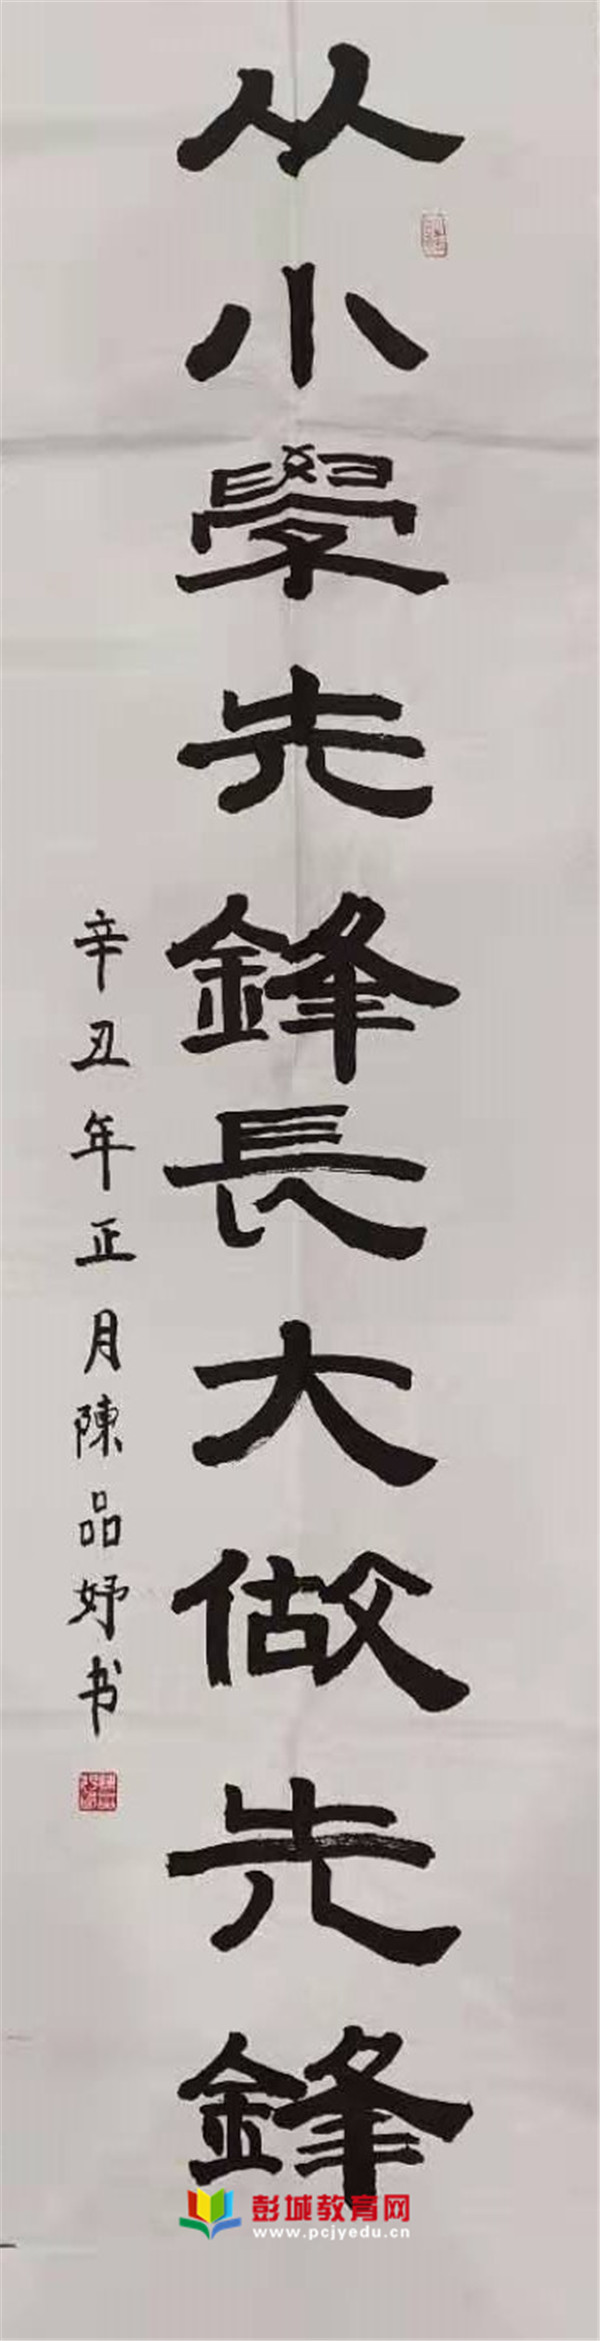 从小學先鋒長大做先鋒
辛丑年正月陳品妤书
彭城教育网
www.pcjyedu.cn